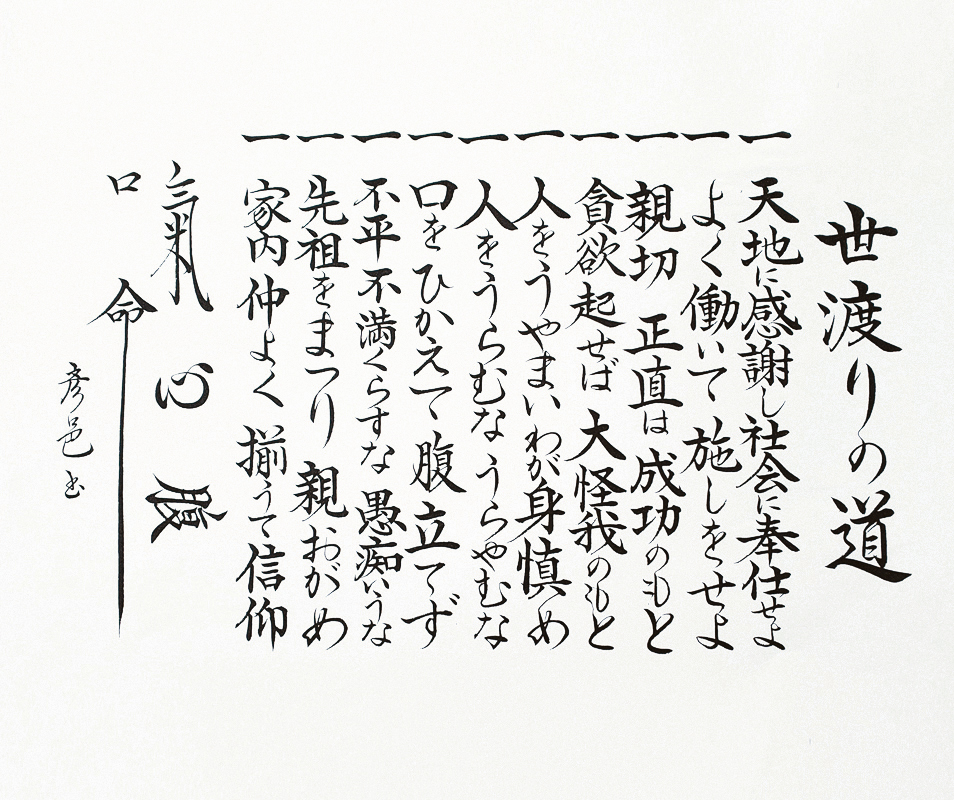 世渡りの道
一 天地に感謝し社会に奉仕せよ
一 よく働いて施しをせよ
一 親切 正直は 成功のもと
一 貪欲起せば 大怪我のもと
一 人をうやまい わが身慎め
一 人をうらむな うらやむな
一 口をひかえて 腹立てず
一 不平不満くらすな 愚痴いうな
一 先祖をまつり 親おがめ
一 家内仲よく 揃うて信仰
氣 心 腹
口 命
彦邑